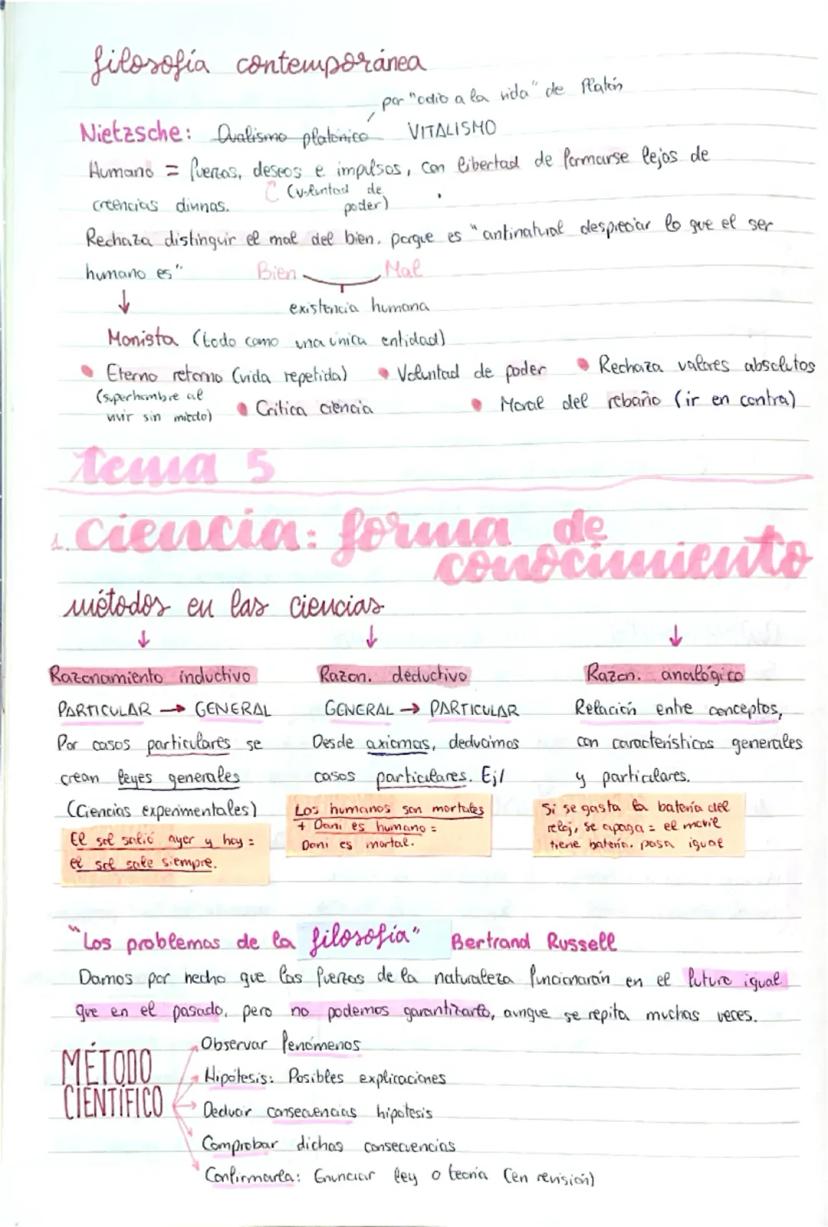 filosofía contemporánea
por "odio a la vida" de Platón
Nietzsche: Dualismo platónico VITALISMO
Humano = fuerzas, deseos e impulsos, con libertad de formarse lejos de
creencias divinas. (voluntad de poder)
Rechaza distinguir el mal del bien, porque es "antinatural despreciar lo que el ser
humano es" Bien Mal
existencia humana
Monista (todo como una única entidad)
Eterno retorno (vida repetida) Voluntad de poder Rechaza valores absolutos
(superhombre al vivir sin miedo) Crítica ciencia Moral del rebaño (ir en contra)
tema 5
1. ciencia: forma de
conocimiento
métodos en las ciencias
Razonamiento inductivo Razon. deductivo Razon. analógico
PARTICULAR → GENERAL GENERAL → PARTICULAR Relación entre conceptos,
Por casos particulares se Desde axiomas, deducimos con características generales
crean leyes generales casos particulares. Ej/ y particulares.
(Ciencias experimentales)
El sol salió ayer y hoy =
el sol sale siempre.
Los humanos son mortales
+ Dani es humano =
Dani es mortal.
Si se gasta la batería del
reloj, se apaga = el movil
tiene batería, pasa igual
"Los problemas de la filosofía" Bertrand Russell
Damos por hecho que las fuerzas de la naturaleza funcionarán en el futuro igual
que en el pasado, pero no podemos garantizarlo, aunque se repita muchas veces.
MÉTODO
CIENTÍFICO
Observar fenómenos
Hipótesis: Posibles explicaciones
Deducir consecuencias hipótesis
Comprobar dichas consecuencias
Confirmarla: Enunciar ley o teoría (en revisión)